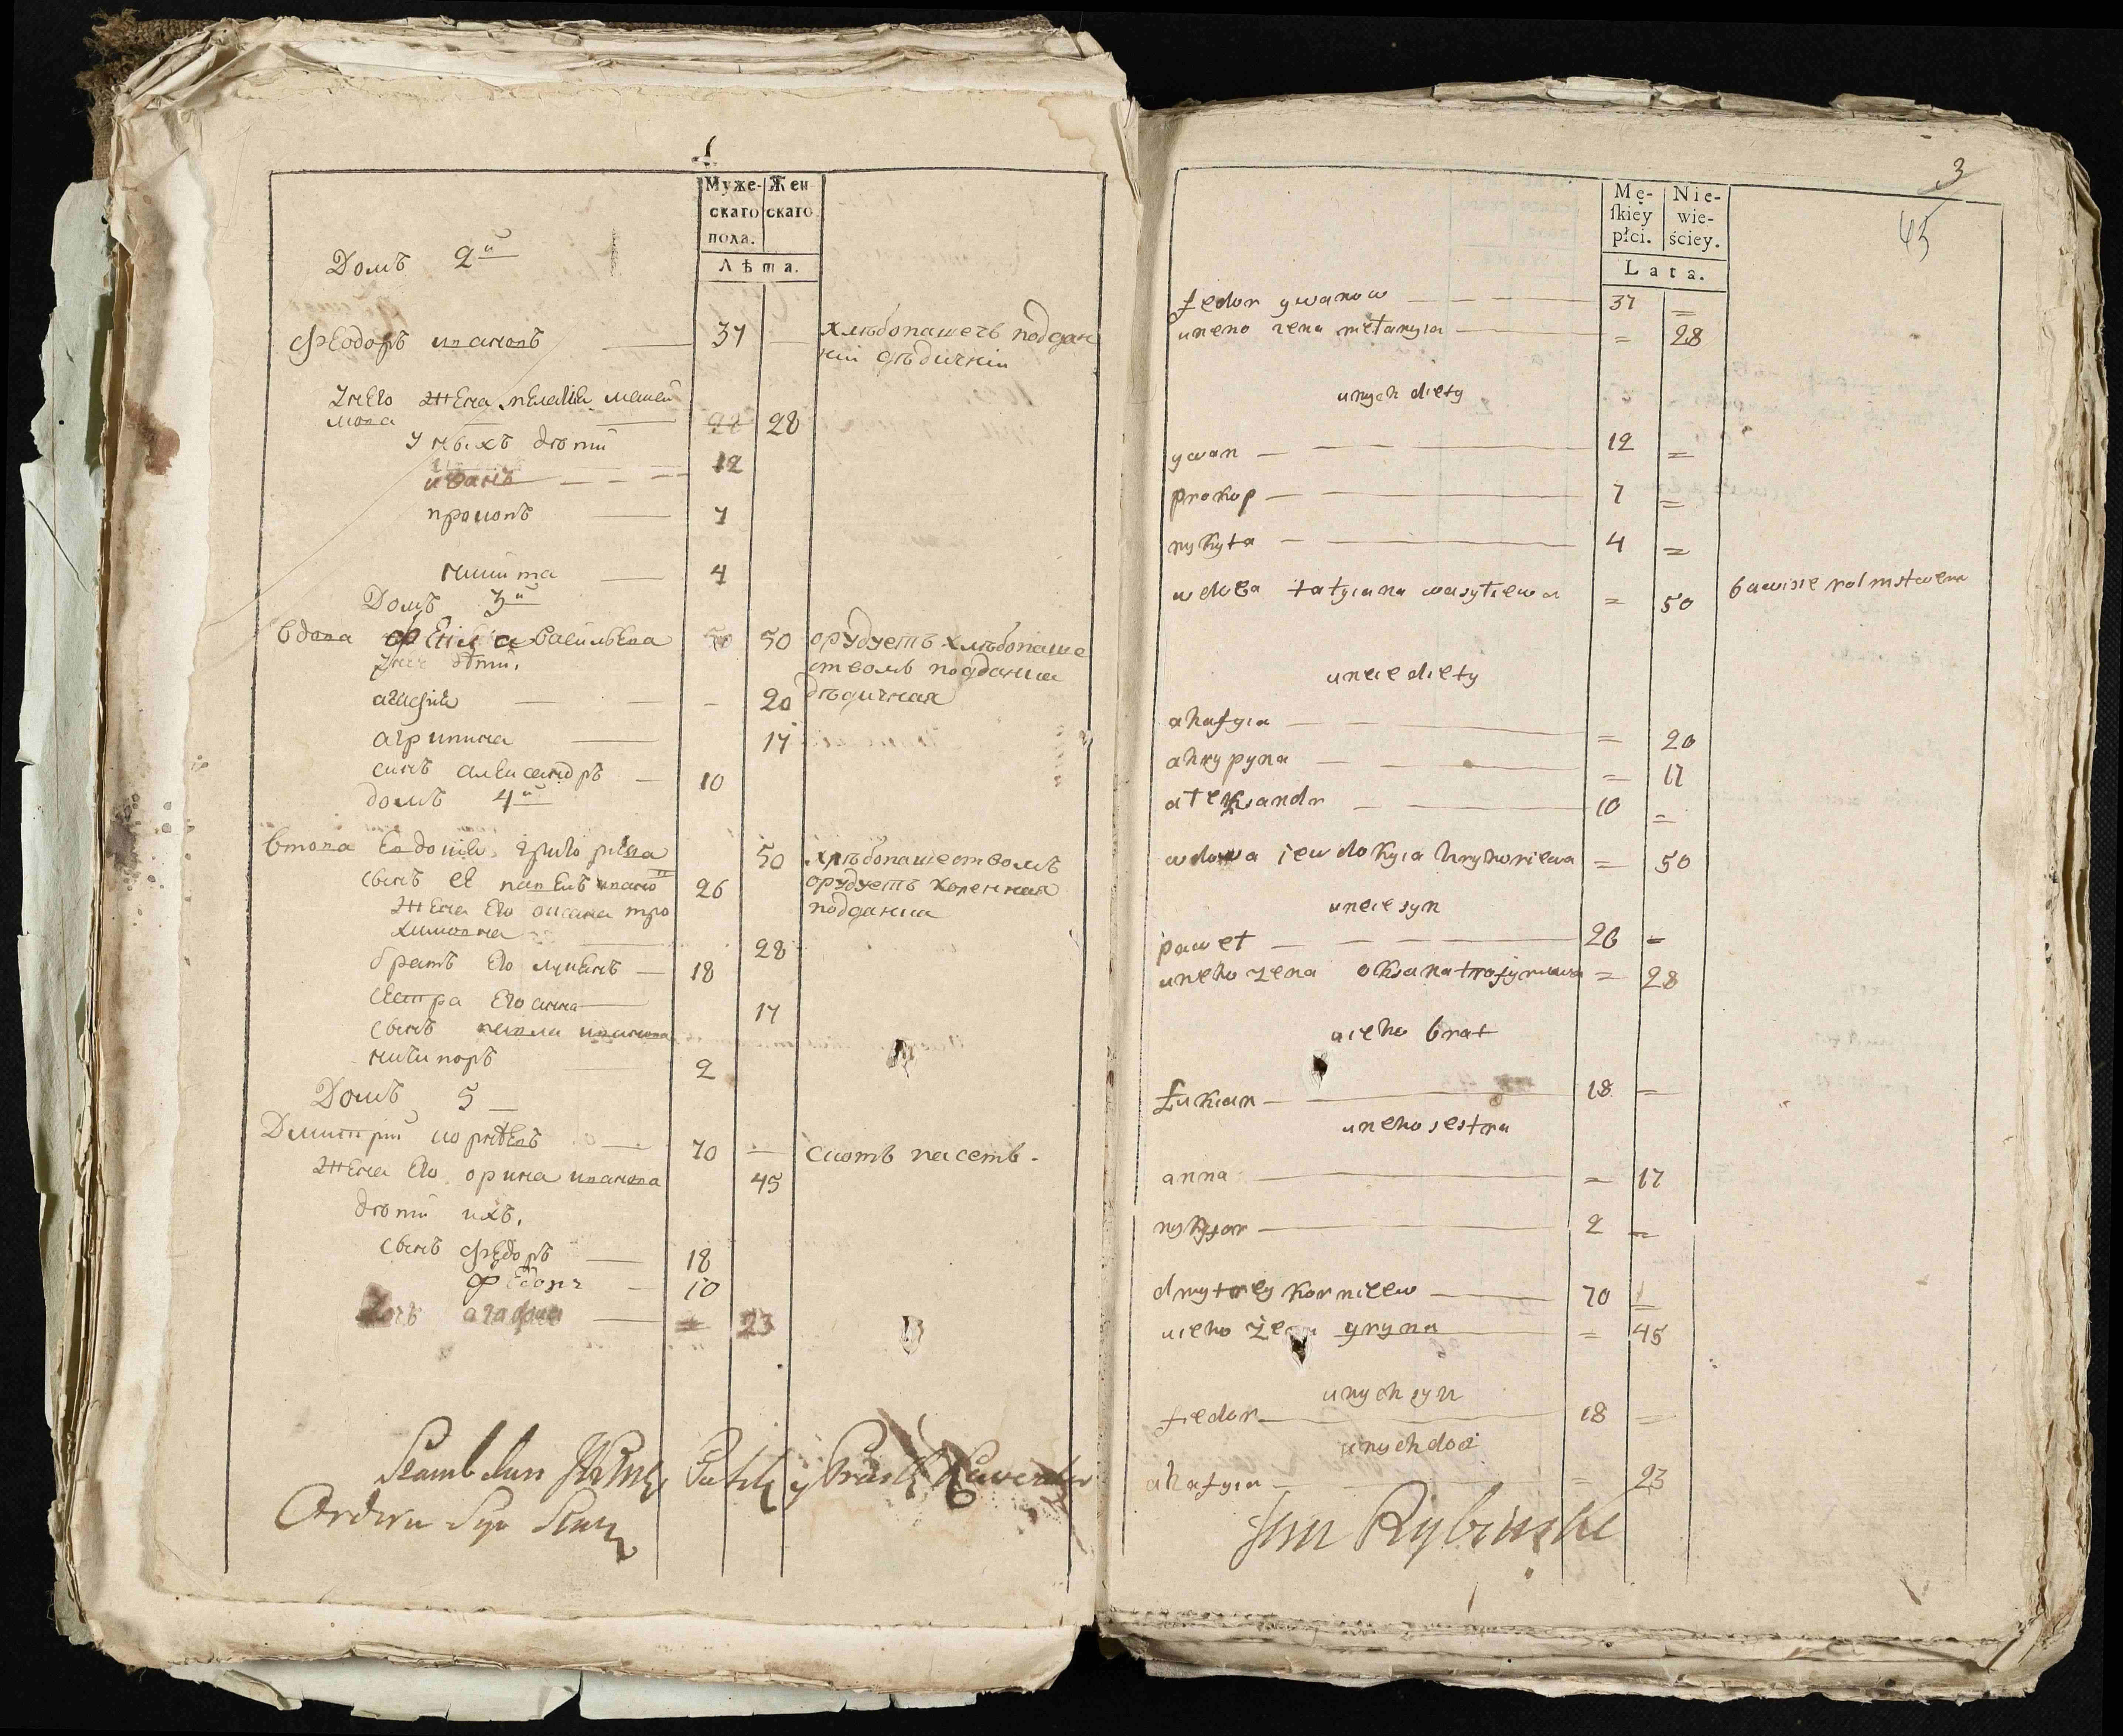 1
Муже- Жен
скаго скаго
пола.
Лѣта.
Домъ 2й
Феодоръ ивановъ 37 хлѣбопашечъ поддан
ній дѣдичній
Унего жена пелагиа
28 28
Унихъ дѣти
иванъ 12
прокопъ 7
никита 4
Домъ 3й
Вдова васильева 50 50 орудуетъ хлѣбопаше
ствомъ подданна
дѣдичная
дѣти.
агафия - 20
агрипина 17
синъ александръ 10
домъ 4й
Вдова евдокия григориева 50 хлѣбопашествомъ
синъ ей павелъ 26 орудуетъ коренная
подданна
жена его оксана тро
химовна 28
братъ его лукянъ 18
сестра его анна 17
синъ павла иванова
никипоръ 2
Домъ 5
Димитрий корнѣевъ 70 скотъ пасетъ.
жена его орина иванова 45
дѣти ихъ.
синъ федоръ 18
10
дочъ агафия 23
3
Mę- Nie-
ſkiey wie-
płci. ściey.
Lata.
fedor ywanow 37 =
uneho zena = 28
unych diety
ywan 12 =
prokop 7 =
nykyta 4 =
wdowa tatyiana wasylewa = 50 bawisie rolnistwem
uneie diety
ahafyia = 20
ahrypyna = 17
alexandr 10 =
wdowa iewdokyia hryhoriewa = 50
uneie syn
pawel 26 =
uneho zena oksana trofymowa = 28
uieho brat
Łukian 18 =
uneho sestra
anna = 17
nykyfor 2 =
dmytrey kornieew 70 =
uieho żena yryna = 45
unych syn
fiedor 18 =
unych doci
ahafyia = 23
Jan Rybinski